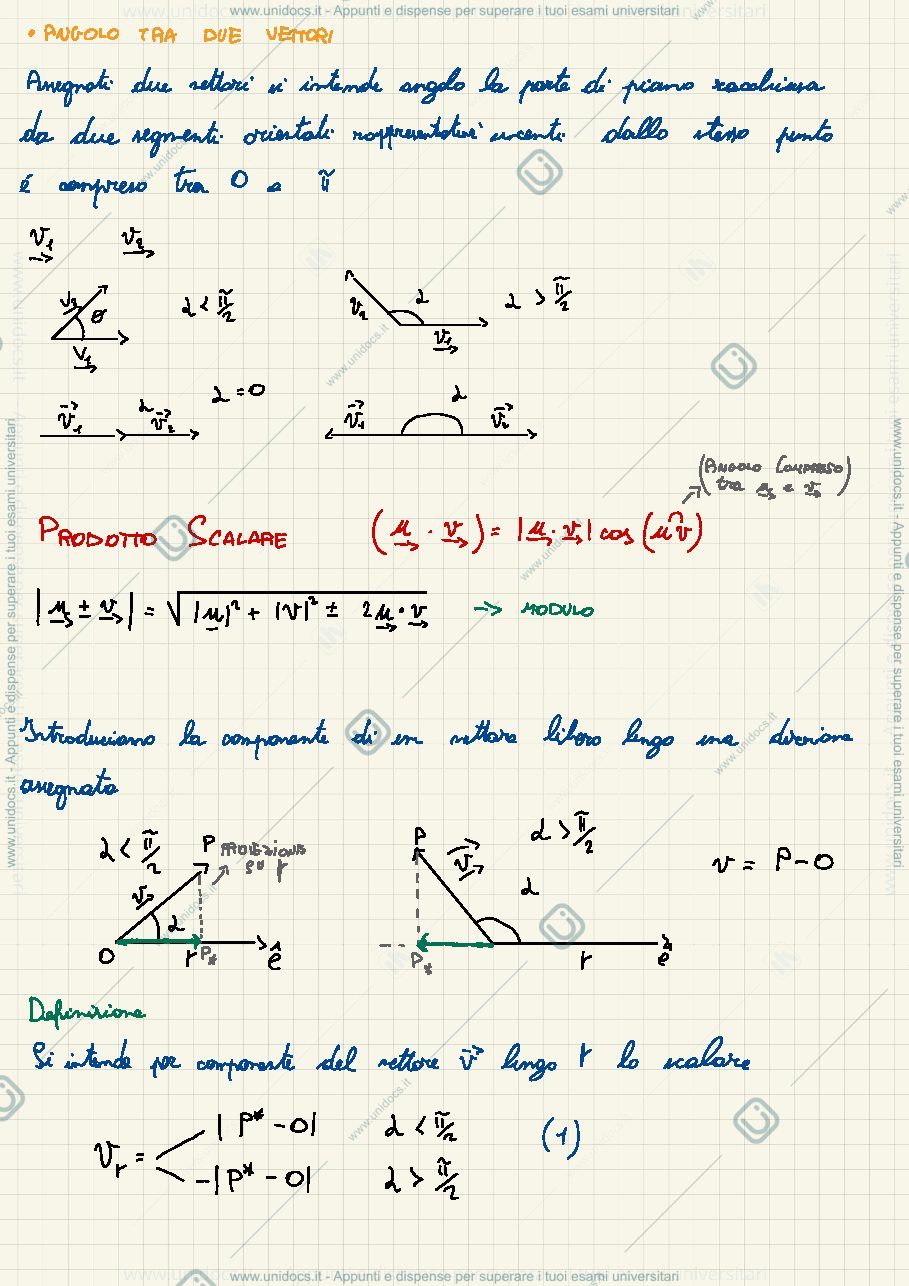 www.unidocs.it - Appunti e dispense per superare i tuoi esami universitari
• ANGOLO TRA DUE VETTORI
Assegnati due vettori si intende angolo la parte di piano racchiusa
da due segmenti orientati rappresentativi uscenti dallo stesso punto
é compreso tra 0 a π
v₁ v₂
v₂ θ v₁ α < π/2 v₂ α v₁ α > π/2
v₁ α v₂ α = 0 v₁ α v₂
(ANGOLO COMPRESO
tra u e v)
PRODOTTO SCALARE (u · v) = |u · v| cos (uv)
|u ± v| = √|u|² + |v|² ± 2u · v → MODULO
Introduciamo la componente di un vettore libero lungo una direzione
assegnata
α < π/2 P PROIEZIONE
su r
v α O r P* ê
P v α > π/2 α P* r ê
v = P - O
Definizione
Si intende per componente del vettore v lungo r lo scalare
vᵣ = |P* - O| α < π/2 (1)
-|P* - O| α > π/2
www.unidocs.it - Appunti e dispense per superare i tuoi esami universitari